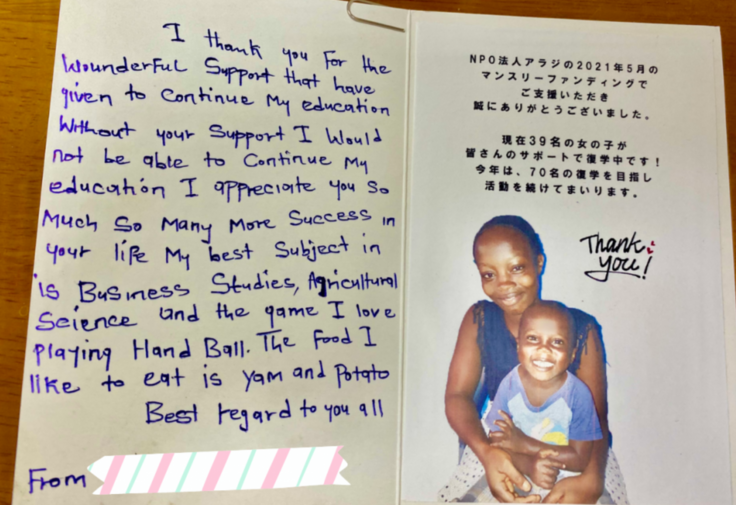 I thank you For the
Wounderful Support that have
given to Continue My education
Without your Support I Would
not be able to Continue My
education I appreciate you So
Much So Many More Success in
your life My best Subject in
is Business Studies, Agricultural
Science and the game I love
playing Hand Ball. The Food I
like to eat is Yam and Potato
Best regard to you all
From
NPO法人アラジの2021年5月の
マンスリーファンディングで
ご支援いただき
誠にありがとうございました。
現在39名の女の子が
皆さんのサポートで復学中です!
今年は、70名の復学を目指し
活動を続けてまいります。
Thank
you!